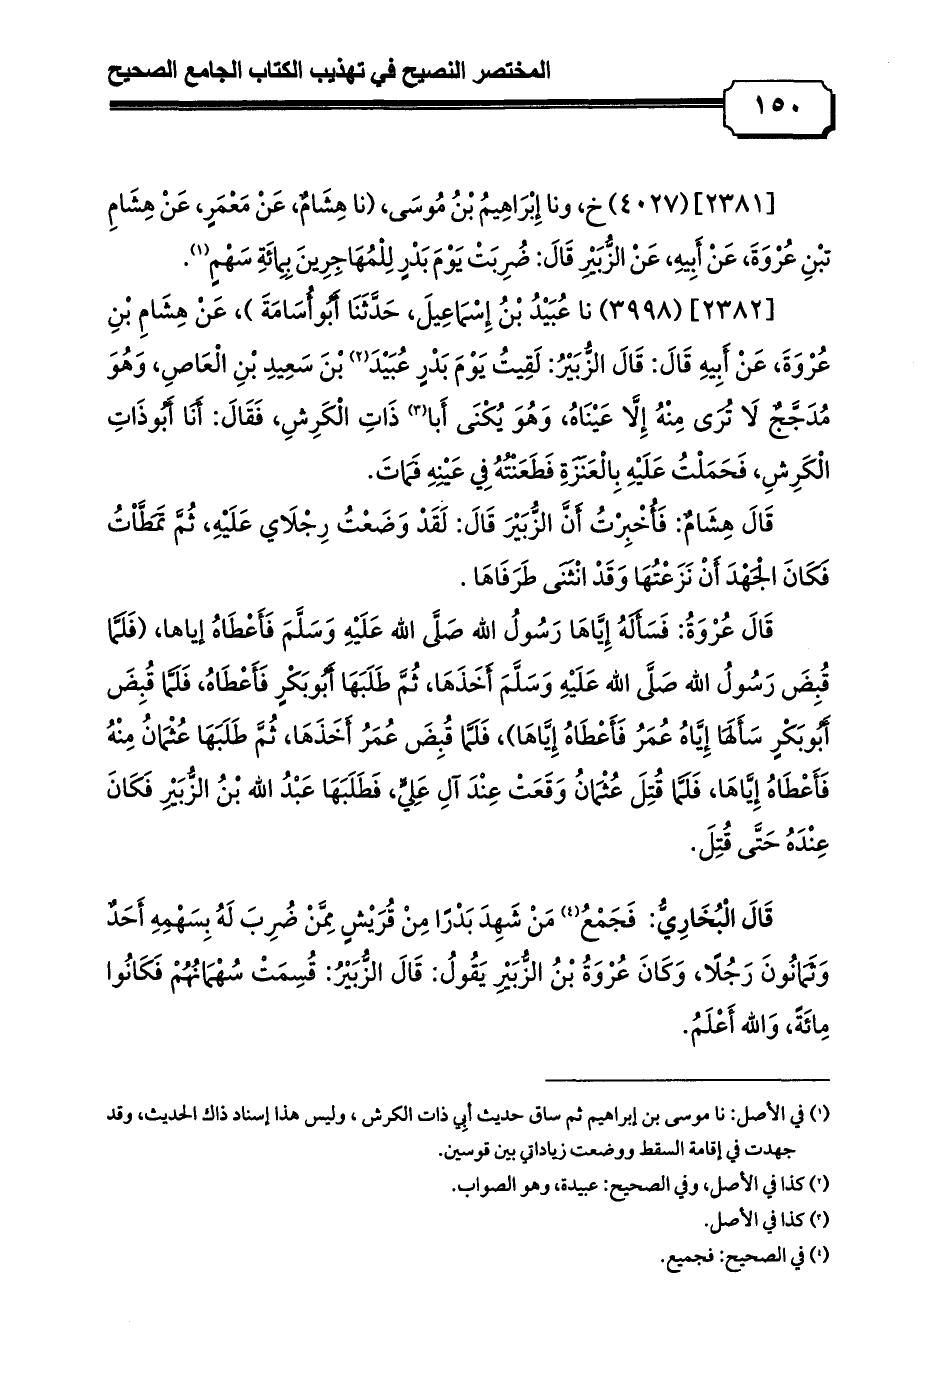 المختصر النصيح في تهذيب الكتاب الجامع الصحيح
١٥٠
[٢٣٨١] (٤٠٢٧) خ، ونا إِبْرَاهِيمُ بْنُ مُوسَى، (نا هِشَامٌ، عَنْ مَعْمَرٍ، عَنْ هِشَامِ
بْنِ عُرْوَةَ، عَنْ أَبِيهِ، عَنْ الزُّبَيْرِ قَالَ: ضُرِبَتْ يَوْمَ بَدْرٍ لِلْمُهَاجِرِينَ بِمِائَةِ سَهْمٍ(١).
[٢٣٨٢] (٣٩٩٨) نا عُبَيْدُ بْنُ إِسْمَاعِيلَ، حَدَّثَنَا أَبُو أُسَامَةَ )، عَنْ هِشَامِ بْنِ
عُرْوَةَ، عَنْ أَبِيهِ قَالَ: قَالَ الزُّبَيْرُ: لَقِيتُ يَوْمَ بَدْرٍ عُبَيْدَ(٢) بْنَ سَعِيدِ بْنِ الْعَاصِ، وَهُوَ
مُدَجَّجٌ لَا تُرَى مِنْهُ إِلَّا عَيْنَاهُ، وَهُوَ يُكْنَى أَبا(٣) ذَاتِ الْكَرِشِ، فَقَالَ: أَنَا أَبُو ذَاتِ
الْكَرِشِ، فَحَمَلْتُ عَلَيْهِ بِالْعَنَزَةِ فَطَعَنْتُهُ فِي عَيْنِهِ فَمَاتَ.
قَالَ هِشَامٌ: فَأُخْبِرْتُ أَنَّ الزُّبَيْرَ قَالَ: لَقَدْ وَضَعْتُ رِجْلَاي عَلَيْهِ، ثُمَّ تَمَطَّأْتُ
فَكَانَ الْجَهْدَ أَنْ نَزَعْتُهَا وَقَدْ انْثَنَى طَرَفَاهَا .
قَالَ عُرْوَةُ: فَسَأَلَهُ إِيَّاهَا رَسُولُ الله صَلَّى الله عَلَيْهِ وَسَلَّمَ فَأَعْطَاهُ إياها، (فَلَمَّا
قُبِضَ رَسُولُ الله صَلَّى الله عَلَيْهِ وَسَلَّمَ أَخَذَهَا، ثُمَّ طَلَبَهَا أَبُو بَكْرٍ فَأَعْطَاهُ، فَلَمَّا قُبِضَ
أَبُو بَكْرٍ سَأَلَهَا إِيَّاهُ عُمَرُ فَأَعْطَاهُ إِيَّاهَا)، فَلَمَّا قُبِضَ عُمَرُ أَخَذَهَا، ثُمَّ طَلَبَهَا عُثْمَانُ مِنْهُ
فَأَعْطَاهُ إِيَّاهَا، فَلَمَّا قُتِلَ عُثْمَانُ وَقَعَتْ عِنْدَ آلِ عَلِيٍّ، فَطَلَبَهَا عَبْدُ الله بْنُ الزُّبَيْرِ فَكَانَ
عِنْدَهُ حَتَّى قُتِلَ.
قَالَ الْبُخَارِيُّ: فَجَمْعُ(٤) مَنْ شَهِدَ بَدْرًا مِنْ قُرَيْشٍ مِمَّنْ ضُرِبَ لَهُ بِسَهْمِهِ أَحَدٌ
وَثَمَانُونَ رَجُلًا، وَكَانَ عُرْوَةُ بْنُ الزُّبَيْرِ يَقُولُ: قَالَ الزُّبَيْرُ: قُسِمَتْ سُهْمَانُهُمْ فَكَانُوا
مِائَةً، وَالله أَعْلَمُ.
(١) في الأصل: نا موسى بن إبراهيم ثم ساق حديث أبي ذات الكرش ، وليس هذا إسناد ذاك الحديث، وقد
جهدت في إقامة السقط ووضعت زياداتي بين قوسين.
(٢) كذا في الأصل، وفي الصحيح: عبيدة، وهو الصواب.
(٣) كذا في الأصل.
(٤) في الصحيح: فجميع.